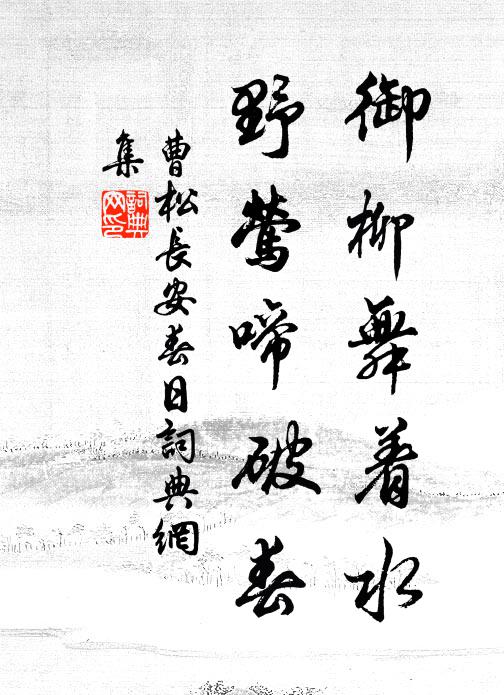 御柳舞着水
野莺啼破春
曹松長安春日詞典網
集
詞典
网印